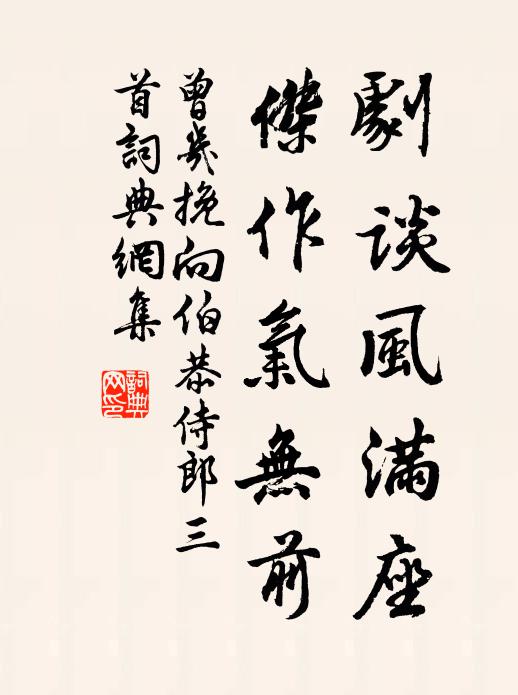 劇談風滿座
傑作氣無前
曾幾挽向伯恭侍郎三
首詞典網集
詞典
网印